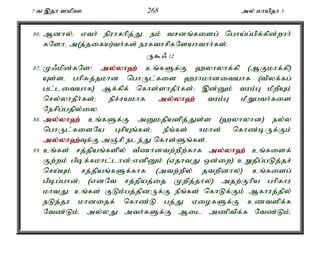 7 வ இதா ஸமிஊ 268 அல் மாயிதா 5
86. ஆனால், எவர் நிராகரித்து, நம் வசனங்களைப் பொய்ப்பிக்கின்றார்
களோ, அ(த்தகைய)வர்கள் நரகவாசிகளேயாவார்கள்.
ருகூஃ 12
87. மூஃமின்களே! அல்லாஹ் உங்களுக்கு ஹலாலாக்கி (ஆகுமாக்கி)
யுள்ள, பரிசுத்தமான பொருட்களை ஹராமானவையாக (விலக்கப்
பட்டவையாக) ஆக்கிக் கொள்ளாதீர்கள்; இன்னும் வரம்பு மீறியும்
செல்லாதீர்கள்; நிச்சயமாக அல்லாஹ் வரம்பு மீறுபவர்களை
நேசிப்பதில்லை.
88. அல்லாஹ் உங்களுக்கு அனுமதியளித்துள்ள (ஹலாலான) நல்ல
பொருட்களையே புசியுங்கள்; நீங்கள் ஈமான் கொண்டிருக்கும்
அல்லாஹ்வுக்கு அஞ்சி நடந்து கொள்ளுங்கள்.
89. உங்கள் சத்தியங்களில் வீணானவற்றிற்காக அல்லாஹ் உங்களைக்
குற்றம் பிடிக்கமாட்டான்;எனினும் (ஏதாவது ஒன்றை) உறுதிப்படுத்தச்
செய்யும் சத்தியங்களுக்காக (அவற்றில் தவறினால்) உங்களைப்
பிடிப்பான்; (எனவே சத்தியத்தை முறித்தால்) அதற்குரிய பரிகார
மாவது: உங்கள் குடும்பத்தினருக்கு நீங்கள் கொடுக்கும் ஆகாரத்தில்
நடுத்தர மானதைக் கொண்டு பத்து ஏழைகளுக்கு உணவளிக்க
வேண்டும், அல்லது அவர்களுக்கு ஆடை அணிவிக்க வேண்டும்,